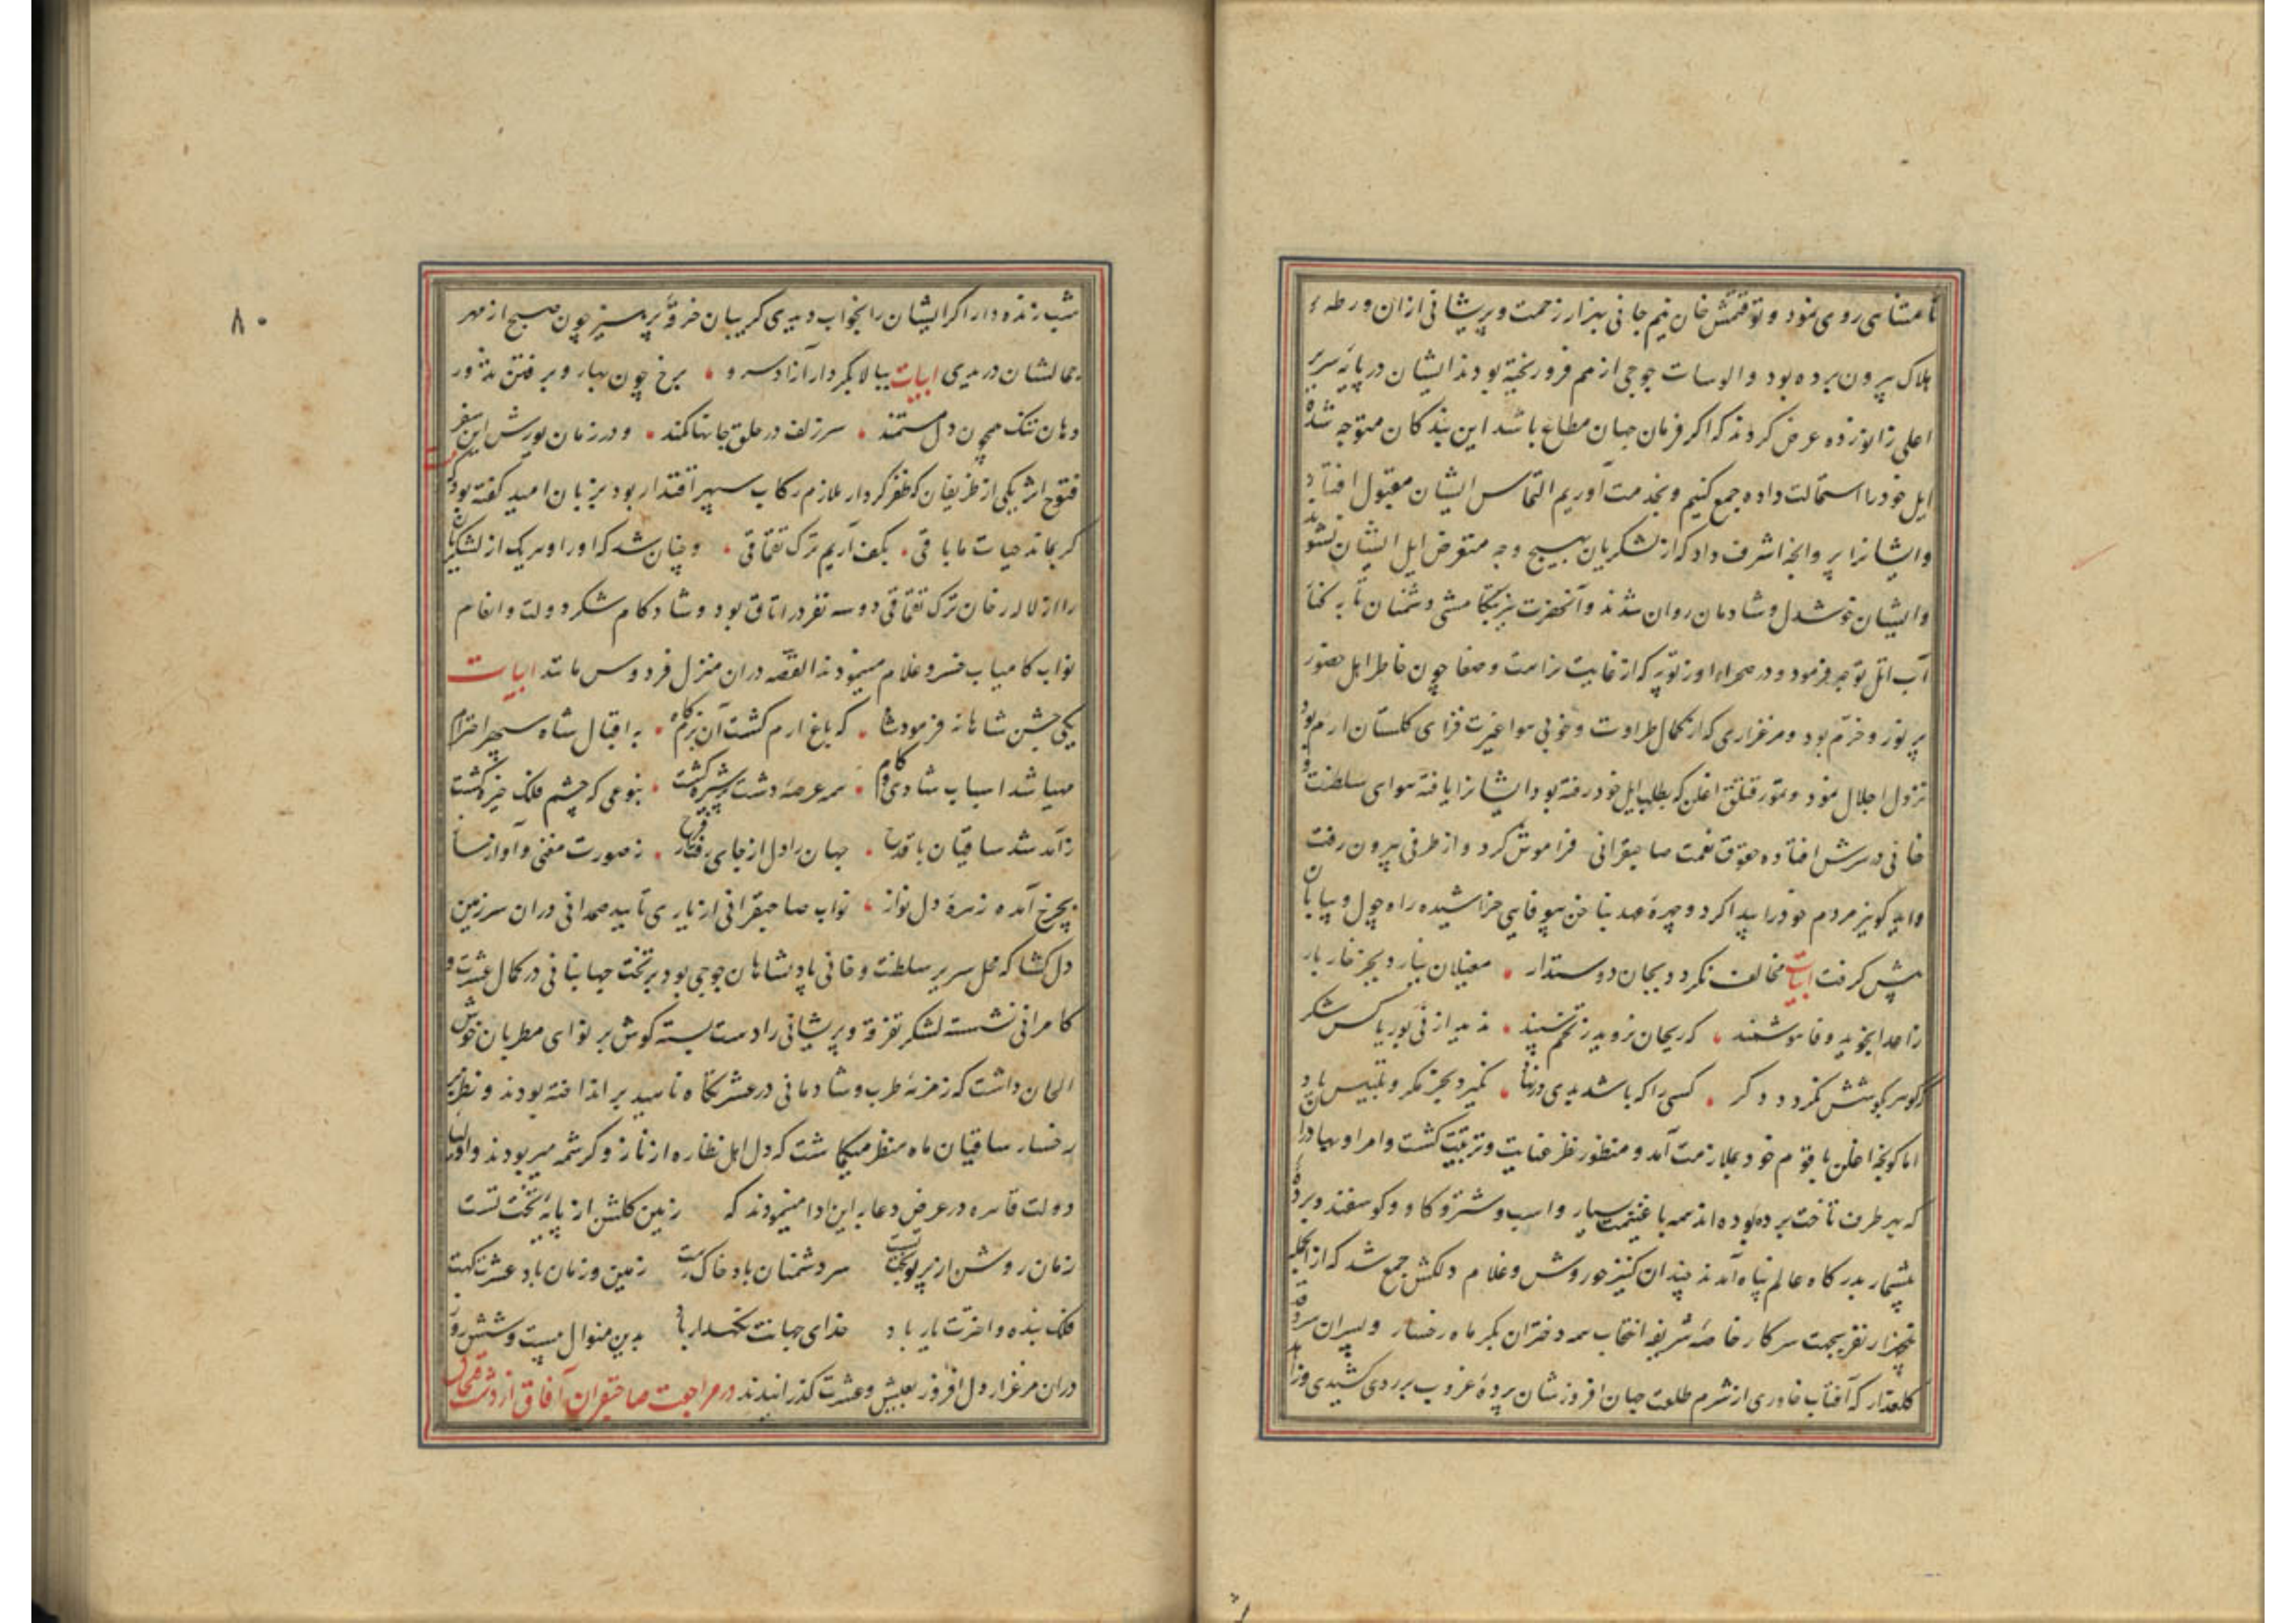 نامتناهی روی نمود و توقتمش خان نیم جانی بهزار زحمت و پریشانی ازان ورطهٔ
هلاک بیرون برده بود و الوسات جوجی از هم فرو ریخته بودند ایشان در پایهٔ سریر
اعلی زانو زده عرض کردند که اکر فرمان جهان مطاع باشد این بندکان متوجه شده
ایل خود را استمالت داده جمع کنیم و بخدمت آوریم التماس ایشان مقبول افتاد
و ایشانرا پروانجهٔ اشرف داد که از لشکریان بهیچ وجه متعرض ایل ایشان نشوند
و ایشان خوشدل و شادمان روان شدند و آنحضرت بتکامشی دشمنان تا به کنار
آب اتل توجه فرمود و در صحراء اورتوپه که از غایت نزاهت و صفا چون خاطر اهل حضور
پر نور و خرّم بود و مرغزاری که از کمال طراوت و خوبی هوا غیرت فزای کلستان ارم بود
نزول اجلال نمود و تمور قتلق اغلن که بطلب ایل خود رفته بود ایشانرا یافته هوای سلطنت و
خانی در سرش افتاده حقوق نعمت صاحبقرانی فراموش کرد و از طرفی بیرون رفت
و اید کو نیز مردم خود را پیدا کرد و چهرهٔ عهد بناخن بیوفایی خراشیده راه چول و بیابان
پیش کرفت ابیات مخالف نکردد بجان دوستدار مغیلان نیارد بجز خار بار
زاعدا نجوید وفا هوشمند که ریحان نروید ز تخم سپند ندید از نی بوریا کس شکر
کوهر بکوشش نکردد دکر کسی را که باشد بدی در نهاد نکیرد بجز مکر و تلبیس یاد
اما کونجه اغلن با قوم خود بملازمت آمد و منظور نظر عنایت و تربیت کشت و امرا و بهادران
که بهر طرف تاخت برده بوده اند همه با غنیمت بسیار و اسب و شتر و کاو و کوسفند و بردهٔ
بیشمار بدرکاه عالم پناه آمدند چندان کنیز حوروش و غلام دلکش جمع شد که ازانجمله
پنجهزار نفر بجهت سرکار خاصهٔ شریفه انتخاب همه دختران بکر ماه رخسار و پسران سرو قد
کلعذار که آفتاب خاوری از شرم طلعت جهان افروزشان پردهٔ غروب بر روی کشیدی و زاهد
شب زنده دار اکر ایشان را بخواب دیدی کریبان خرقهٔ پرهیز چون صبح از مهر
جمالشان دریدی ابیات ببالا بکردار آزاد سرو برخ چون بهار و برفتن تذرو
دهان تنک همچون دل مستمند سر زلف در حلق جانها کمند و در زمان یورش این سفر
فتوح اثر یکی از ظریفان که ظفر کردار ملازم رکاب سپهر اقتدار بود بزبان امید کفته بود
کر بماند حیات ما باقی بکف آریم ترک قفچاقی و چنان شد که او را و هر یک از لشکریان
را از لاله رخان ترک قفچاقی دو سه نفر در اتاق بود و شادکام شکر دولت و انعام
نواب کامیاب خسرو غلام مینمودند القصه دران منزل فردوس مانند ابیات
یکی جشن شاهانه فرمود شاه که باغ ارم کشت آن بزمکاه به اقبال شاه سپهر احترام
مهیا شد اسباب شادی و کام همه عرصهٔ دشت پر شیره کشت بنوعی که چشم فلک خیره کشت
ز آمد شد ساقیان با قدح جهان را دل از جای رفت از فرح ز صورت مغنی و آواز ساز
بچرخ آمده زهرهٔ دل نواز نواب صاحبقرانی از یاری تایید صمدانی دران سرزمین
دلکشا که محل سریر سلطنت و خانی پادشاهان جوجی بود بر تخت جهانبانی در کمال عشرت و
کامرانی نشسته لشکر تفرقه و پریشانی را دست بسته کوش بر نوای مطربان خوش
الحان داشت که زمزمهٔ طرب و شادمانی در عشرتکاه ناهید بر انداخته بودند و نظر بر
رخسار ساقیان ماه منظر میکماشت که دل اهل نظاره از ناز و کرشمه میربودند و اولیاء
دولت قاهره در عرض دعا به این ادا مینمودند که زمین کلشن از پایهٔ تخت تست
زمان روشن از پرتو بخت تست سر دشمنان باد خاک رهت زمین و زمان باد عشرتکهت
فلک بنده و اخترت یار باد خدای جهانت نکهدار باد بدین منوال بیست و شش روز
دران مرغزار دل افروز بعیش و عشرت کذرانیدند در مراجعت صاحبقران آفاق از دشت قفچاق
۸۰